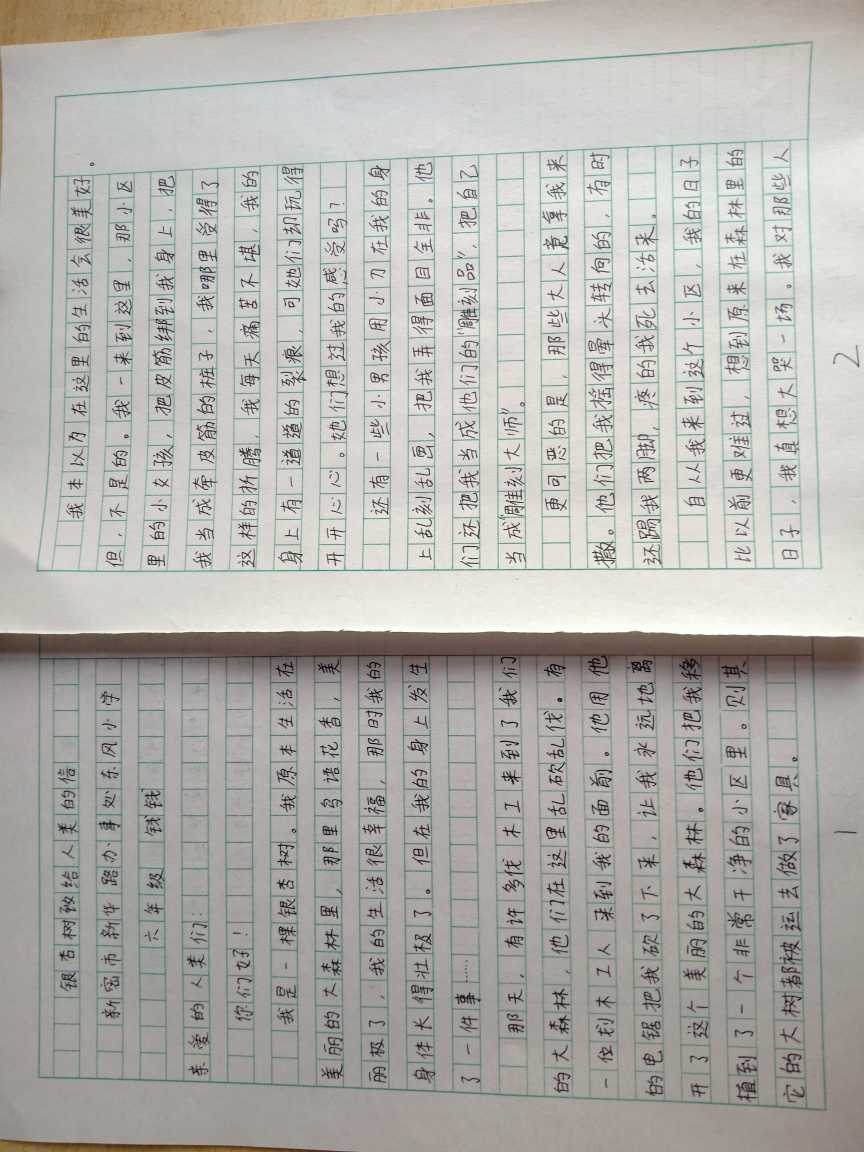 银杏树致给人类的信
新密市新华路办事处东风小学
六年级 钱钱
亲爱的人类们：
你们好！
我是一棵银杏树。我原本生活在
美丽的大森林里，那里鸟语花香，美
丽极了，我的生活很幸福，那时我的
身体长得壮极了。但在我的身上发生
了一件事……
那天，有许多伐木工来到了我们
的大森林，他们在这里乱砍乱伐。有
一位刬木工人来到我的面前。他用他
的电锯把我砍了下来，让我永远地离
开了这个美丽的大森林。他们把我移
植到了一个非常干净的小区里。则其
它的大树都被运去做了家具。
1
我本以为在这里的生活会很美好。
但，不是的。我一来到这里，那小区
里的小女孩，把皮筋绑到我身上，把
我当成牵皮筋的桩子，我哪里受得了
这样的折腾，我每天痛苦不堪，我的
身上有一道道的裂痕，可她们却玩得
开开心心。她们想过我的感受吗？
还有一些小男孩用小刀在我的身
上乱刻乱画，把我弄得面目全非。他
们还把我当成他们的“雕刻品”，把自己
当成“雕刻大师”。
更可恶的是，那些大人竟拿我来
撒。他们把我摇得晕头转向的，有时
还踢我两脚，疼的我死去活来。
自从我来到这个小区，我的日子
比以前更难过，想到原来在森林里的
日子，我真想大哭一场。我对那些人
2